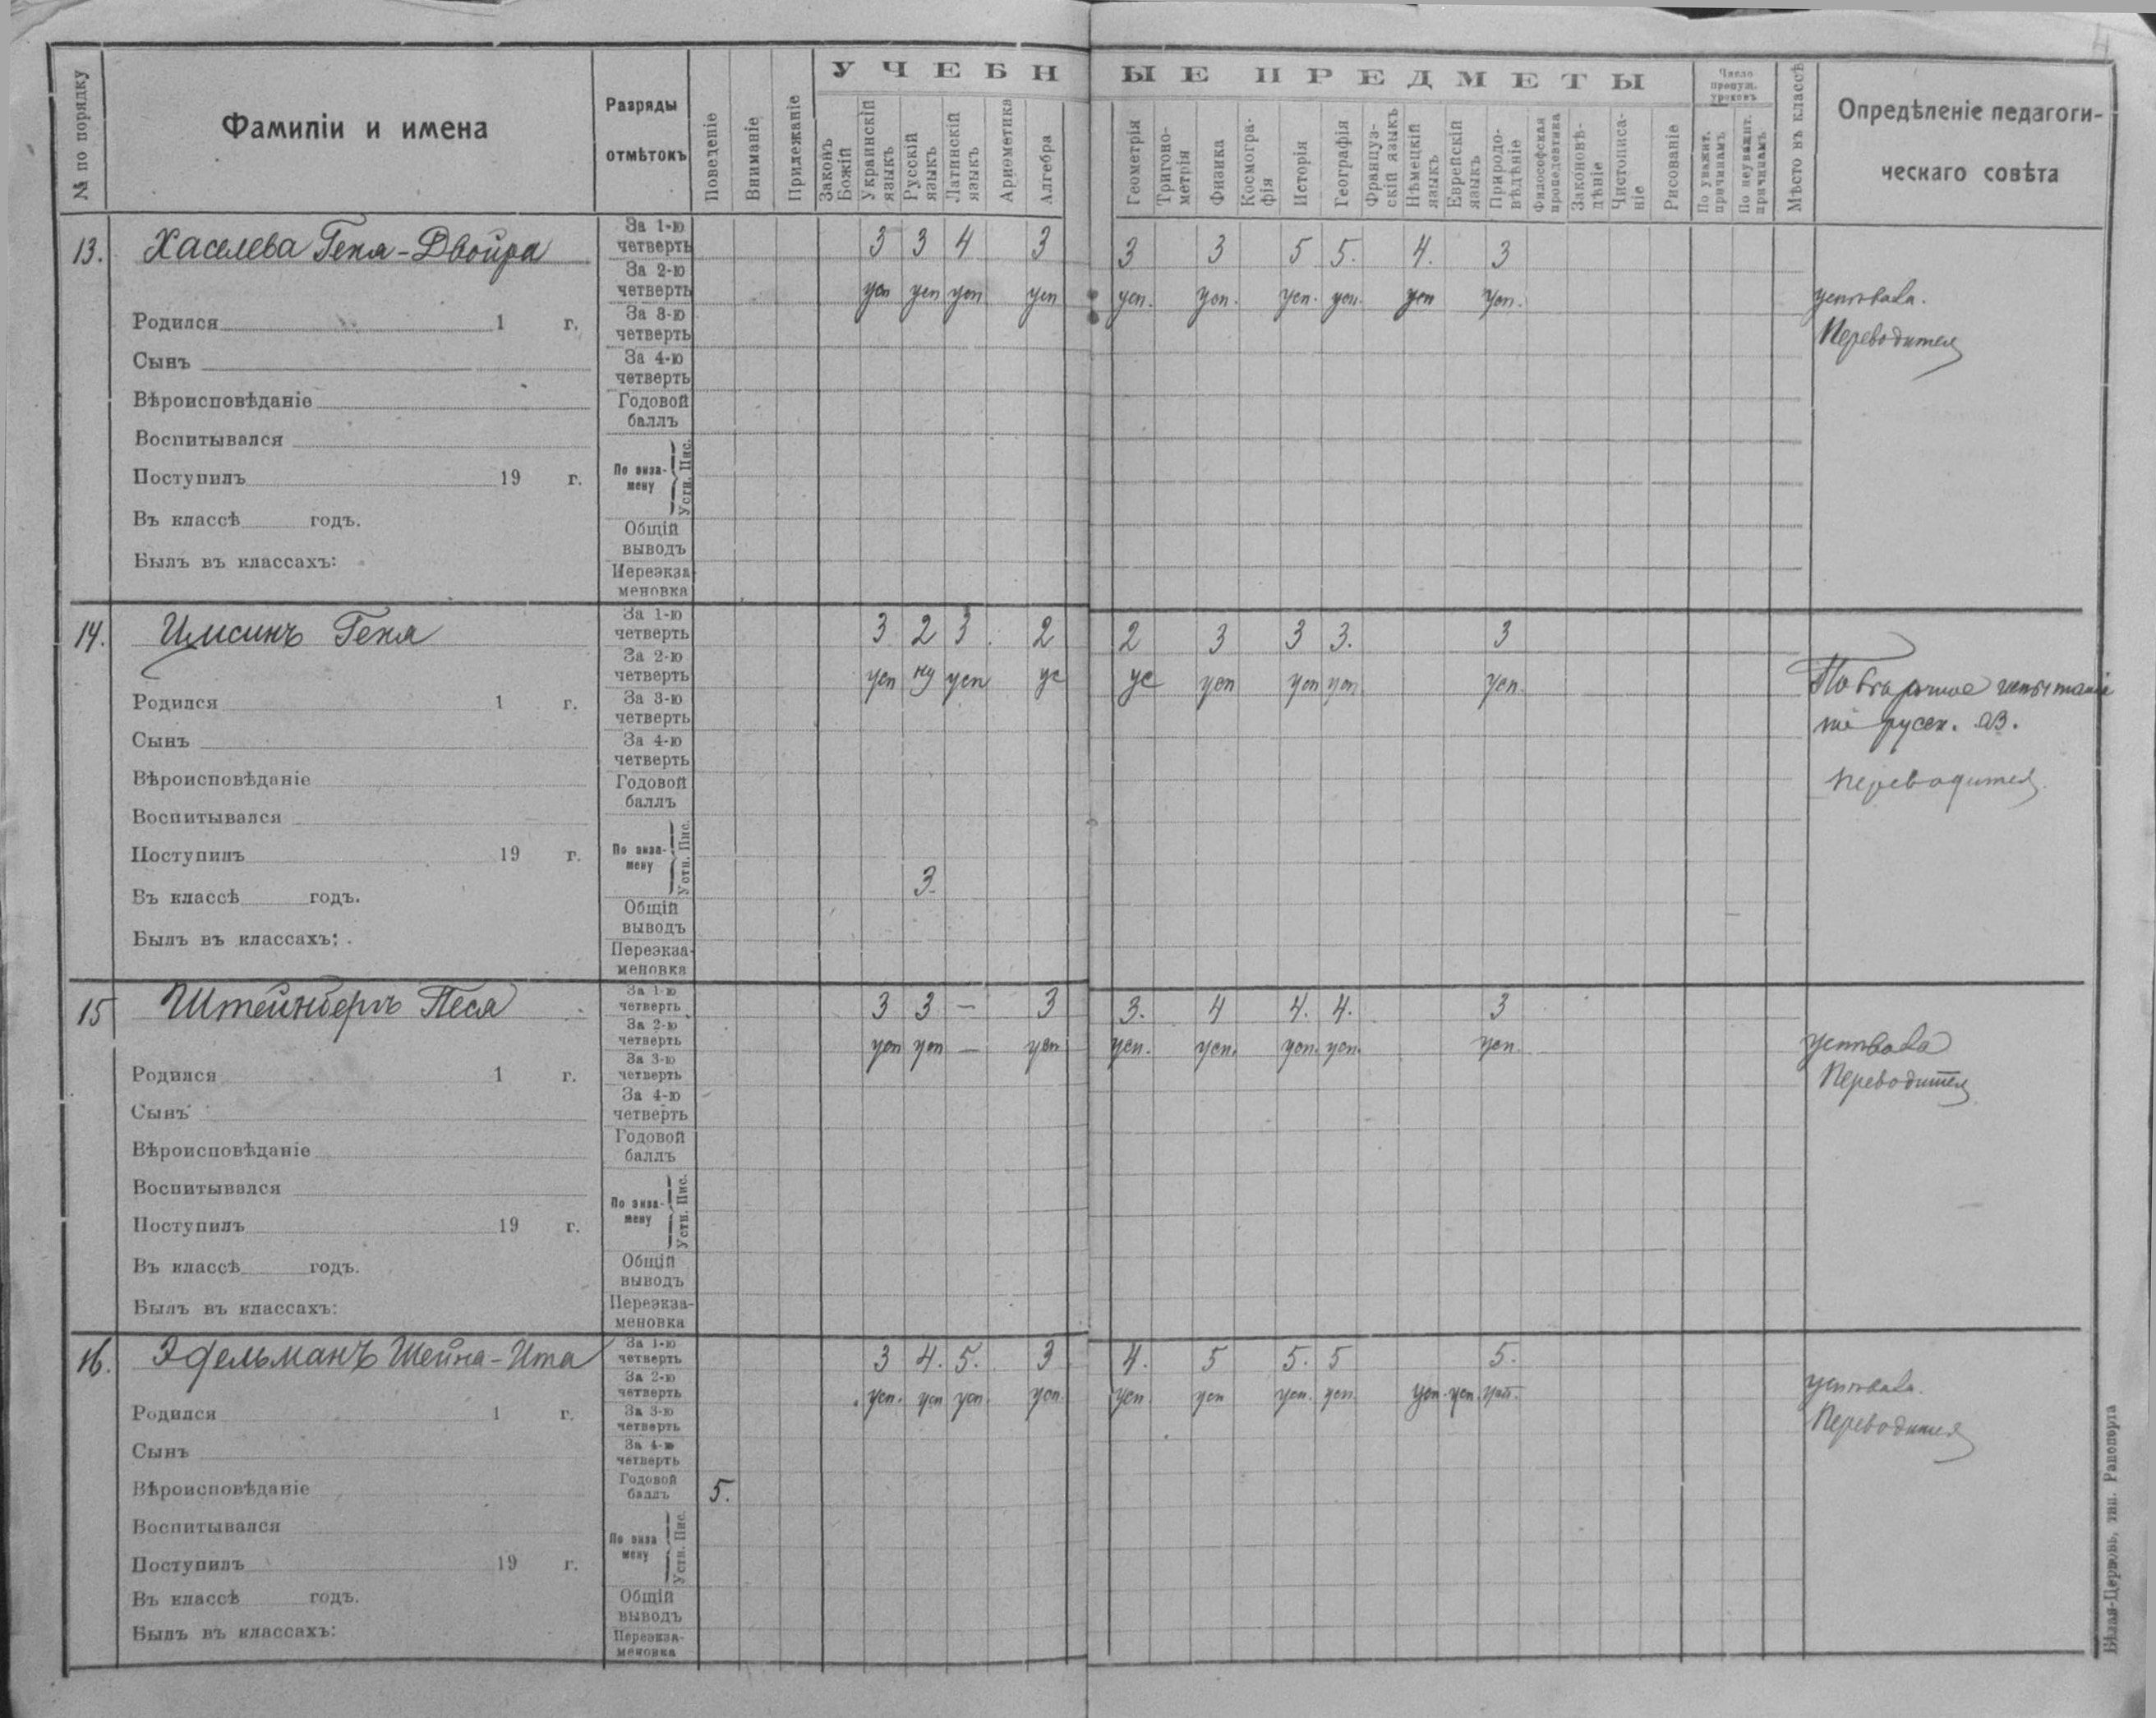 4
№ по порядку
Фамиліи и имена
Разряды
отмѣтокъ
Поведеніе
Вниманіе
Прилежаніе
УЧЕБНЫЕ ПРЕДМЕТЫ
Законъ Божій
Украинскій языкъ
Русскій языкъ
Латинскій языкъ
Ариѳметика
Алгебра
Геометрія
Тригоно-метрія
Физика
Космогра-фія
Исторія
Географія
Француз-скій языкъ
Нѣмецкій языкъ
Еврейскій языкъ
Природо-вѣдѣніе
Философская пропедевтика
Законовѣ-дѣніе
Чистописа-ніе
Рисованіе
Число пропущ. уроковъ
По уважит. причинамъ
По неуважит. причинамъ
Мѣсто въ классѣ
Опредѣленіе педагоги-
ческаго совѣта
13. Хаселева Геня-Двойра
За 1-ю четверть 3 3 4 3 3 3 5 5. 4. 3
За 2-ю четверть усп усп усп усп усп. усп. усп. усп. усп усп.
успѣвала.
Переводится
Родился 1 г.
За 3-ю четверть
Сынъ
За 4-ю четверть
Вѣроисповѣданіе
Годовой баллъ
Воспитывался
Поступилъ 19 г.
По экза-мену Устн. Пис.
Въ классѣ годъ.
Общій выводъ
Былъ въ классахъ:
Переэкза-меновка
14. Цисинъ Геня
За 1-ю четверть 3 2 3 2 2 3 3 3. 3
За 2-ю четверть усп ну усп ус ус усп усп усп усп.
по русск. яз.
Переводится
Родился 1 г.
За 3-ю четверть
Сынъ
За 4-ю четверть
Вѣроисповѣданіе
Годовой баллъ
Воспитывался
Поступилъ 19 г.
По экза-мену Устн. Пис.
3.
Въ классѣ годъ.
Общій выводъ
Былъ въ классахъ:
Переэкза-меновка
15 Штейнбергъ Песя
За 1-ю четверть 3 3 — 3 3. 4 4. 4. 3
За 2-ю четверть усп усп — усп усп. усп. усп. усп. усп.
успѣвала
Переводится
Родился 1 г.
За 3-ю четверть
Сынъ
За 4-ю четверть
Вѣроисповѣданіе
Годовой баллъ
Воспитывался
Поступилъ 19 г.
По экза-мену Устн. Пис.
Въ классѣ годъ.
Общій выводъ
Былъ въ классахъ:
Переэкза-меновка
16. Эдельманъ Шейна-Ита
За 1-ю четверть 3 4. 5. 3 4. 5 5. 5 5.
За 2-ю четверть усп. усп усп. усп. усп. усп усп. усп. усп. усп. усп.
успѣвала.
Переводится
Родился 1 г.
За 3-ю четверть
Сынъ
За 4-ю четверть
Вѣроисповѣданіе
Годовой баллъ 5.
Воспитывался
Поступилъ 19 г.
По экза мену Устн. Пис.
Въ классѣ годъ.
Общій выводъ
Былъ въ классахъ:
Переэкза-меновка
Бѣлая-Церковь, тип. Рапопорта